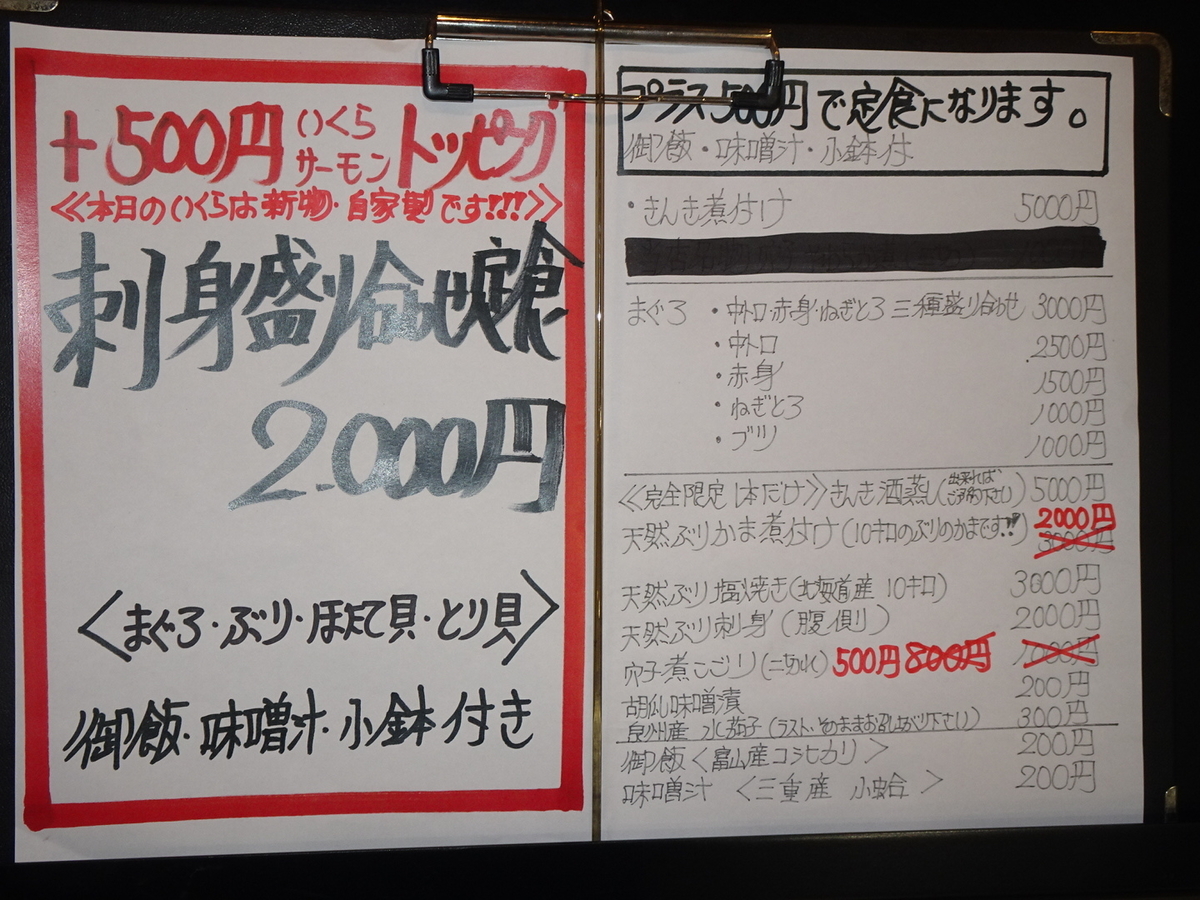 +500円 いくら サーモン トッピング
≪本日のいくらは新物・自家製です!!!≫
刺身盛り合わせ定食
2.000円
〈まぐろ・ぶり・ほたて貝・とり貝〉
御飯・味噌汁・小鉢付き
プラス500円で定食になります。
御飯・味噌汁・小鉢付
・きんき煮付け 5000円
まぐろ ・中トロ・赤身・ねぎとろ 三種盛り合わせ 3000円
・中トロ 2500円
・赤身 1500円
・ねぎとろ 1000円
・ブツ 1000円
≪完全限定1本だけ≫きんき酒蒸し(出来ればご予約下さい) 5000円
天然ぶりかま煮付け(10キロのぶりのかまです!!) 2000円 3000円
天然ぶり塩焼き(北海道産 10キロ) 3000円
天然ぶり刺身(腹側) 2000円
穴子煮こごり(二切れ) 500円 800円 1000円
胡瓜味噌漬 200円
泉州産 水茄子(ラスト・そのままお召しあがり下さい) 300円
御飯〈富山産コシヒカリ〉 200円
味噌汁 〈三重産 小蛤〉 200円